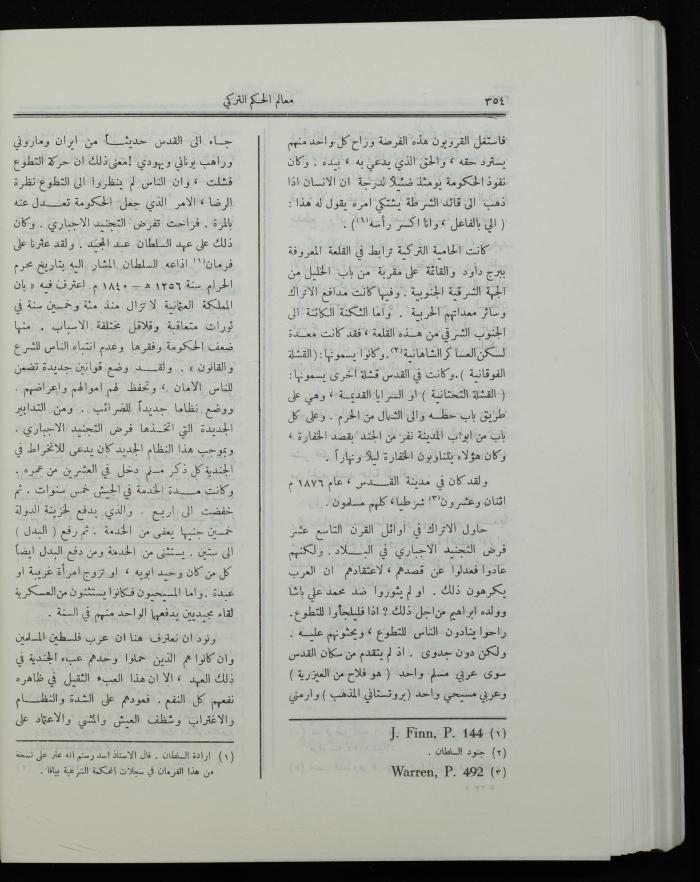 ٣٥٤
معالم الحكم التركي
فاستغل القرويون هذه الفرصة وراح كل واحد منهم
يسترد حقه ، والحق الذي يدعي به ، بيده . وكان
نفوذ الحكومة يومئذ ضئيلاً لدرجة ان الانسان اذا
ذهب الى قائد الشرطة يشتكي امره يقول له هذا :
( الي بالفاعل ، وانا اكسر رأسه(١) ) .
كانت الحامية التركية ترابط في القلعة المعروفة
ببرج داود والقائمة على مقربة من باب الخليل من
الجهة الشرقية الجنوبية . وفيها كانت مدافع الاتراك
وسائر معداتهم الحربية . واما الثكنة الكائنة الى
الجنوب الشرقي من هذه القلعة ، فقد كانت معدة
لسكن العساكر الشاهانية(٢) . وكانوا يسمونها : ( القشلة
الفوقانية ) . وكانت في القدس قشلة اخرى يسمونها :
( القشلة التحتانية ) او السرايا القديمة ، وهي على
طريق باب حطه والى الشمال من الحرم . وعلى كل
باب من ابواب المدينة نفر من الجند بقصد الخفارة ،
وكان هؤلاء يتناوبون الخفارة ليلا ونهاراً .
ولقد كان في مدينة القدس ، عام ١٨٧٦ م
اثنان وعشرون(٣) شرطيا ، كلهم مسلمون .
حاول الاتراك في اوائل القرن التاسع عشر
فرض التجنيد الاجباري في البلاد . ولكنهم
عادوا فعدلوا عن قصدهم ، لاعتقادهم ان العرب
يكرهون ذلك . او لم يثوروا ضد محمد علي باشا
وولده ابراهيم من اجل ذلك ? اذا فليلجأوا للتطوع .
راحوا ينادون الناس للتطوع ، ويحثونهم عليه .
ولكن دون جدوى . اذ لم يتقدم من سكان القدس
سوى عربي مسلم واحد ( هو فلاح من العيزرية )
وعربي مسيحي واحد ( بروتستاني المذهب ) وارمني
(١) J. Finn, P. 144
(٢) جنود السلطان .
(٣) Warren, P. 492
جاء الى القدس حديثاً من ايران وماروني
وراهب يوناني ويهودي ! معنى ذلك ان حركة التطوع
فشلت ، وان الناس لم ينظروا الى التطوع نظرة
الرضا ، الامر الذي جعل الحكومة تعدل عنه
بالمرة . فراحت تفرض التجنيد الاجباري . وكان
ذلك على عهد السلطان عبد المجيد . ولقد عثرنا على
فرمان(١) اذاعه السلطان المشار اليه بتاريخ محرم
الحرام سنة ١٢٥٦ ه – ١٨٤٠ م اعترف فيه « بان
المملكة العثمانية لا تزال منذ مئة وخمسين سنة في
ثورات متعاقبة وقلاقل مختلفة الاسباب . منها
ضعف الحكومة وفقرها وعدم انتباه الناس للشرع
والقانون » . ولقد وضع قوانين جديدة تضمن
للناس الامان ، وتحفظ لهم اموالهم واعراضهم .
ووضع نظاما جديداً للضرائب . ومن التدابير
الجديدة التي اتخذها فرض التجنيد الاجباري .
وبموجب هذا النظام الجديد كان يدعى للانخراط في
الجندية كل ذكر مسلم دخل في العشرين من عمره .
وكانت مدة الخدمة في الجيش خمس سنوات . ثم
خفضت الى اربع . والذي يدفع لخزينة الدولة
خمسين جنيها يعفى من الخدمة . ثم رفع ( البدل )
الى ستين . يستثنى من الخدمة ومن دفع البدل ايضاً
كل من كان وحيد ابويه ، او تزوج امرأة غريبة او
عبدة . واما المسيحيون فكانوا يستثنون من العسكرية
لقاء مجيديين يدفعها الواحد منهم في السنة .
ونود ان نعترف هنا ان عرب فلسطين المسلمين
وان كانوا هم الذين حملوا وحدهم عبء الجندية في
ذلك العهد ، الا ان هذا العبء الثقيل في ظاهره
نفعهم كل النفع . فعودهم على الشدة والنظام
والاغتراب وشظف العيش والمشي والاعتماد على
(١) ارادة السلطان . قال الاستاذ اسد رستم انه عثر على نسخة
من هذا الفرمان في سجلات المحكمة الشرعية بيافا .